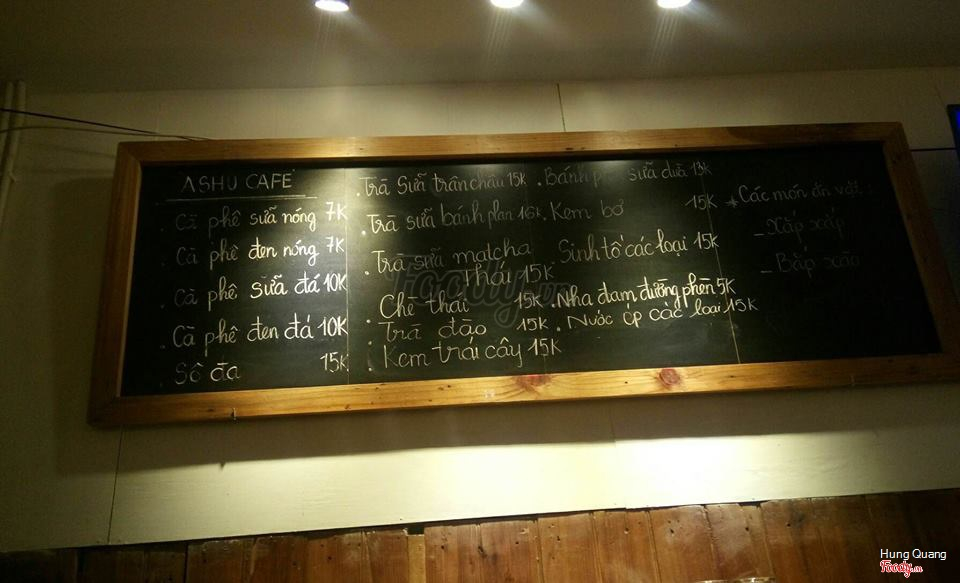 ASHU CAFE
. Cà phê sữa nóng 7K
. Cà phê đen nóng 7K
. Cà phê sữa đá 10K
. Cà phê đen đá 10K
. Sô đa 15K
. Trà Sữa trân châu 15K
. Trà sữa bánh plan 16K
. Trà sữa matcha
Thái 15K
. Chè thái 15K
. Trà đào 15K
. Kem trái cây 15K
. Bánh sữa dừa 13K
. Kem bơ 15K
. Sinh tố các loại 15K
. Nha đam đường phèn 5K
. Nước ép các loại 15K
* Các món ăn vặt:
- Xắp xắp
- Bắp xào
Foody.vn
Hung Quang
Foody.vn